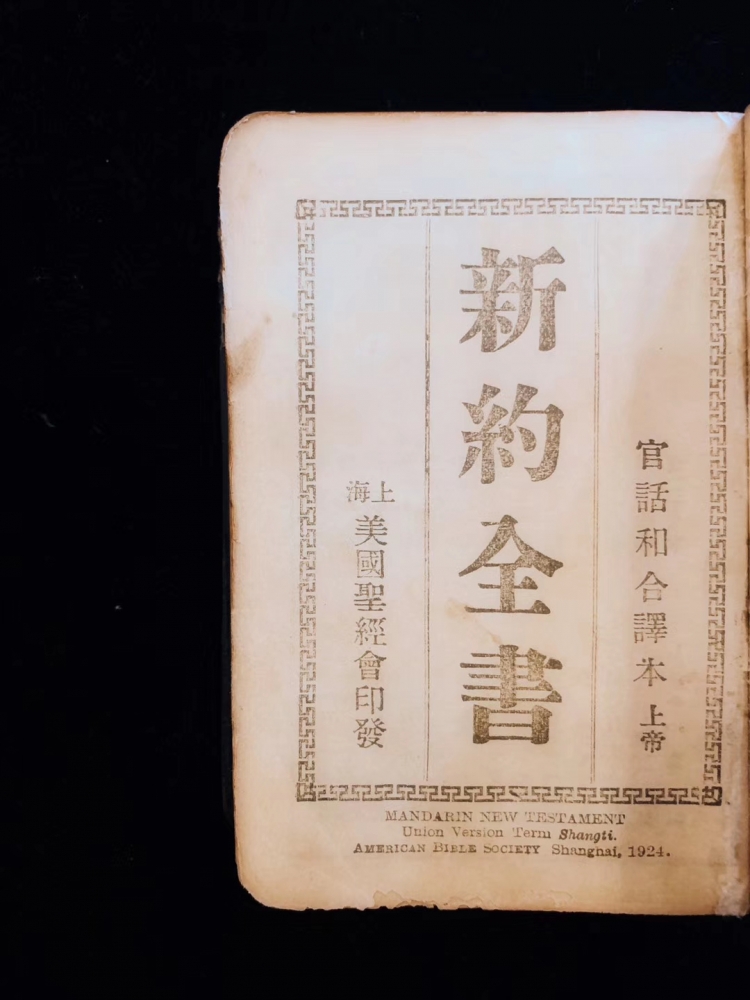 官話和合譯本 上帝
新約全書
上海
美國聖經會印發
MANDARIN NEW TESTAMENT
Union Version Term Shangti.
AMERICAN BIBLE SOCIETY Shanghai, 1924.